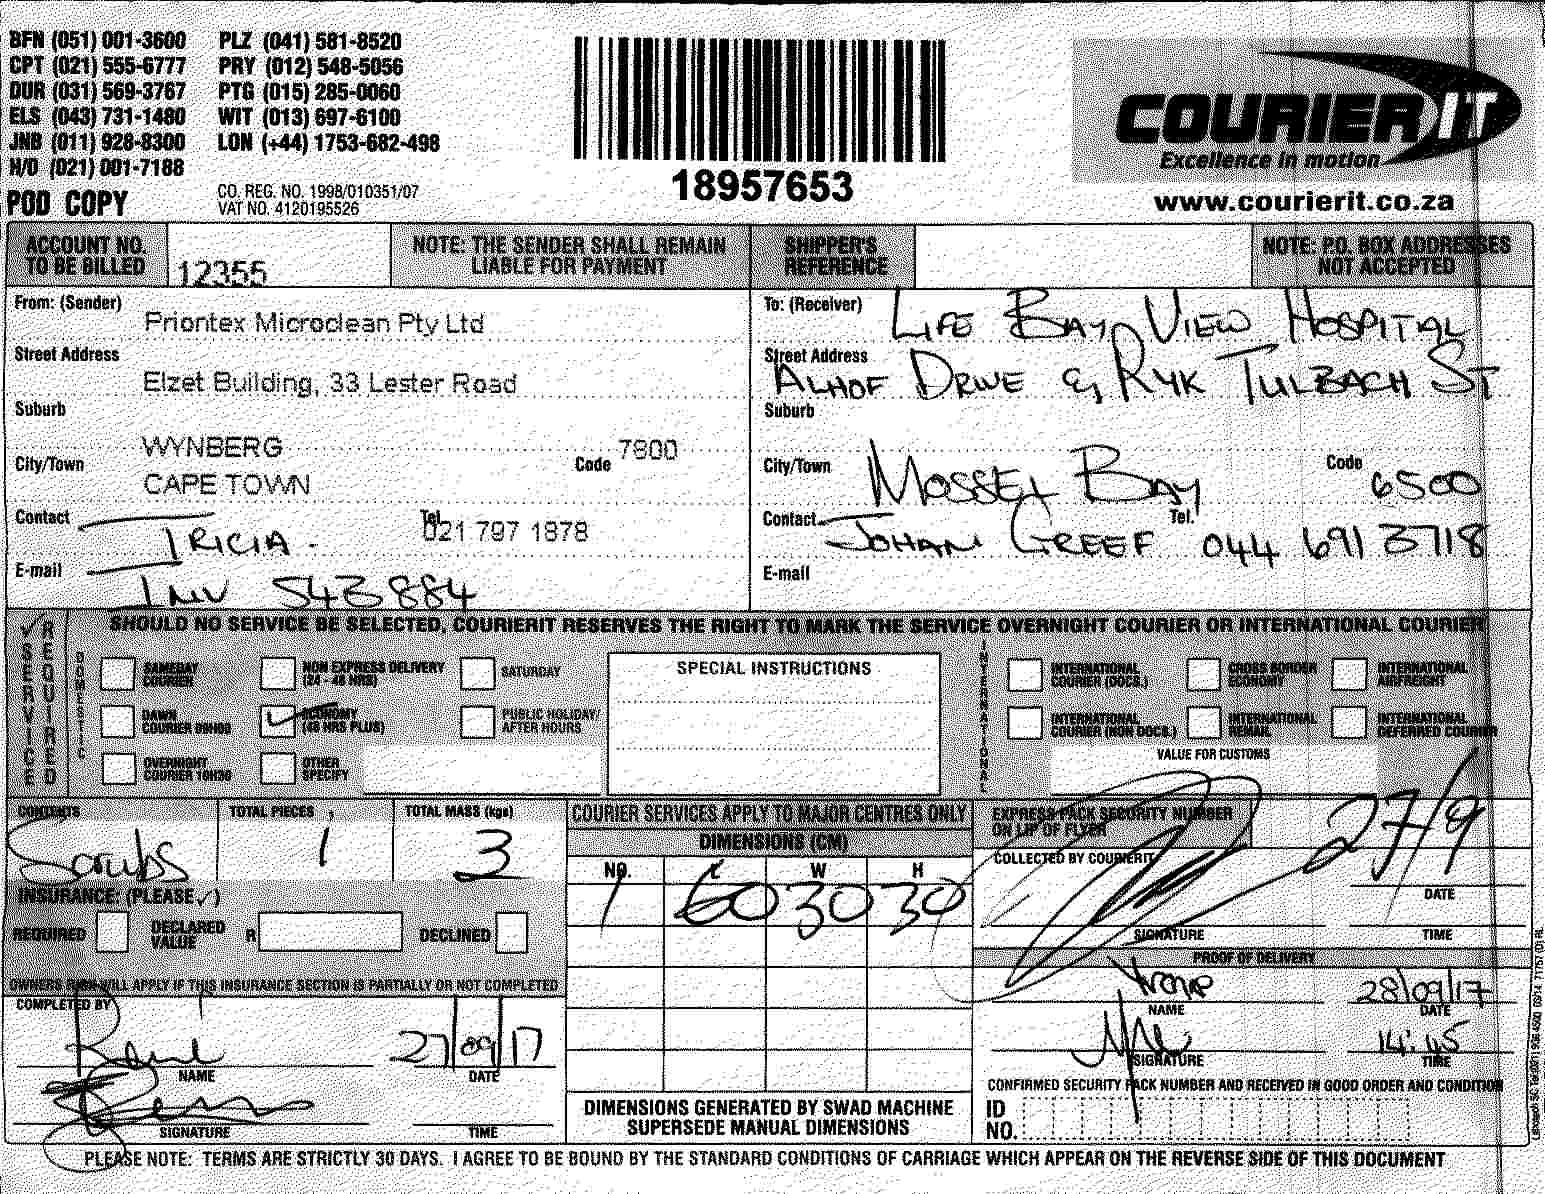 BFN (051) 001-3600 PLZ (041) 581-8520
CPT (021) 555-6777 PRY (012) 548-5056
DUR (031) 569-3767 PTG (015) 285-0060
ELS (043) 731-1480 WIT (013) 697-6100
JNB (011) 928-8300 LON (+44) 1753-682-498
N/D (021) 001-7188
POD COPY
CO. REG. NO. 1998/010351/07
VAT NO. 4120195526
18957653
COURIER IT
Excellence in motion
www.courierit.co.za
ACCOUNT NO. TO BE BILLED 12355
NOTE: THE SENDER SHALL REMAIN LIABLE FOR PAYMENT
SHIPPER'S REFERENCE
NOTE: P.O. BOX ADDRESSES NOT ACCEPTED
From: (Sender) Priontex Microclean Pty Ltd
Street Address Elzet Building, 33 Lester Road
Suburb WYNBERG
City/Town CAPE TOWN Code 7800
Contact TRICIA. Tel. 021 797 1878
E-mail INV 543884
To: (Receiver) LIFE BAY VIEW HOSPITAL
Street Address ALHOF DRIVE & RYK TULBACH ST
Suburb
City/Town MOSSEL BAY Code 6500
Contact JOHAN GREEF Tel. 044 691 3718
E-mail
SERVICE REQUIRED
SHOULD NO SERVICE BE SELECTED, COURIERIT RESERVES THE RIGHT TO MARK THE SERVICE OVERNIGHT COURIER OR INTERNATIONAL COURIER
DOMESTIC
SAMEDAY COURIER
NON EXPRESS DELIVERY (24 - 48 HRS)
SATURDAY
DAWN COURIER 09H00
ECONOMY (48 HRS PLUS)
PUBLIC HOLIDAY/ AFTER HOURS
OVERNIGHT COURIER 10H30
OTHER SPECIFY
SPECIAL INSTRUCTIONS
INTERNATIONAL
INTERNATIONAL COURIER (DOCS.)
CROSS BORDER ECONOMY
INTERNATIONAL AIRFREIGHT
INTERNATIONAL COURIER (NON DOCS.)
INTERNATIONAL REMAIL
INTERNATIONAL DEFERRED COURIER
VALUE FOR CUSTOMS
CONTENTS Scrubs
TOTAL PIECES 1
TOTAL MASS (kgs) 3
COURIER SERVICES APPLY TO MAJOR CENTRES ONLY
DIMENSIONS (CM)
NO. L W H
1 60 30 30
DIMENSIONS GENERATED BY SWAD MACHINE SUPERSEDE MANUAL DIMENSIONS
INSURANCE: (PLEASE ✓)
REQUIRED DECLARED VALUE R DECLINED
OWNERS RISK WILL APPLY IF THIS INSURANCE SECTION IS PARTIALLY OR NOT COMPLETED
COMPLETED BY
NAME
27/09/17
DATE
SIGNATURE TIME
EXPRESS PACK SECURITY NUMBER ON LIP OF FLYER
COLLECTED BY COURIERIT
27/9
DATE
SIGNATURE TIME
PROOF OF DELIVERY
NAME
28/09/17
DATE
SIGNATURE
14:45
TIME
CONFIRMED SECURITY PACK NUMBER AND RECEIVED IN GOOD ORDER AND CONDITION
ID NO.
PLEASE NOTE: TERMS ARE STRICTLY 30 DAYS. I AGREE TO BE BOUND BY THE STANDARD CONDITIONS OF CARRIAGE WHICH APPEAR ON THE REVERSE SIDE OF THIS DOCUMENT